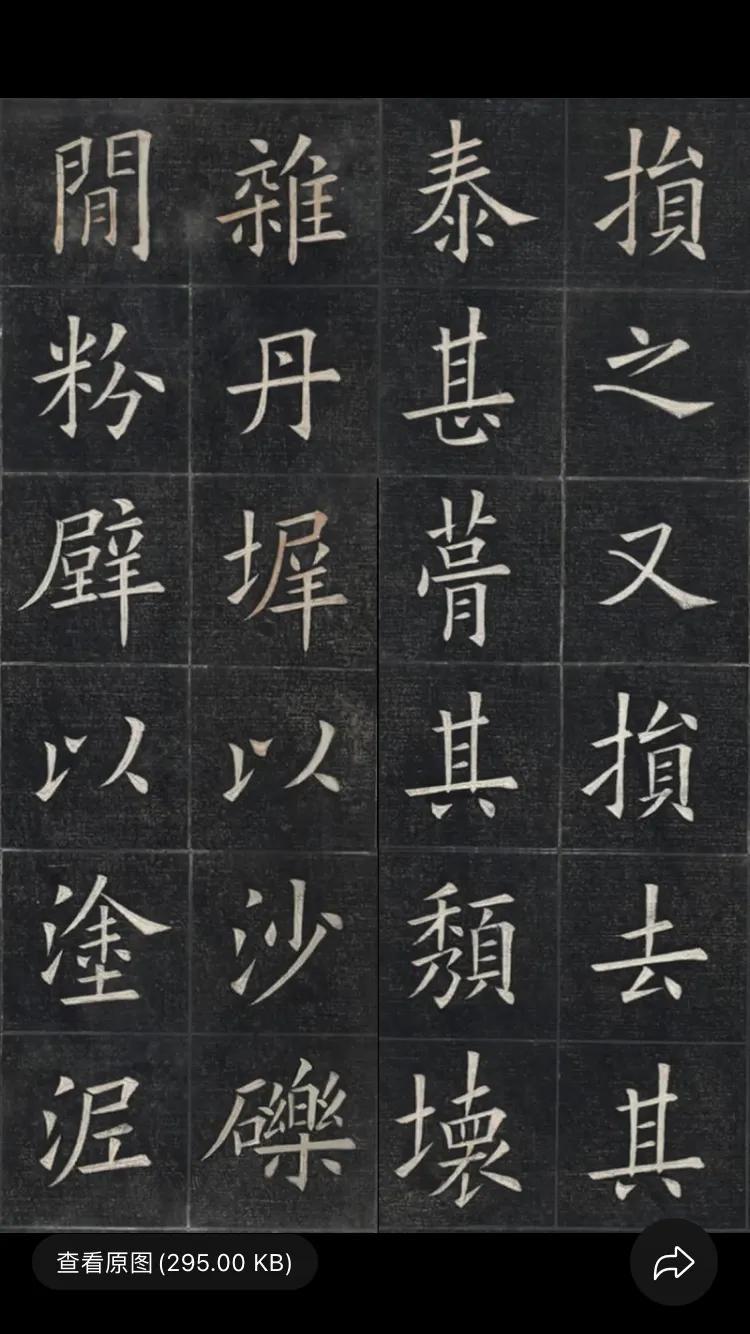 損之又損去其
泰甚葺其頽壞
雜丹墀以沙礫
閒粉壁以塗泥
查看原图 (295.00 KB)